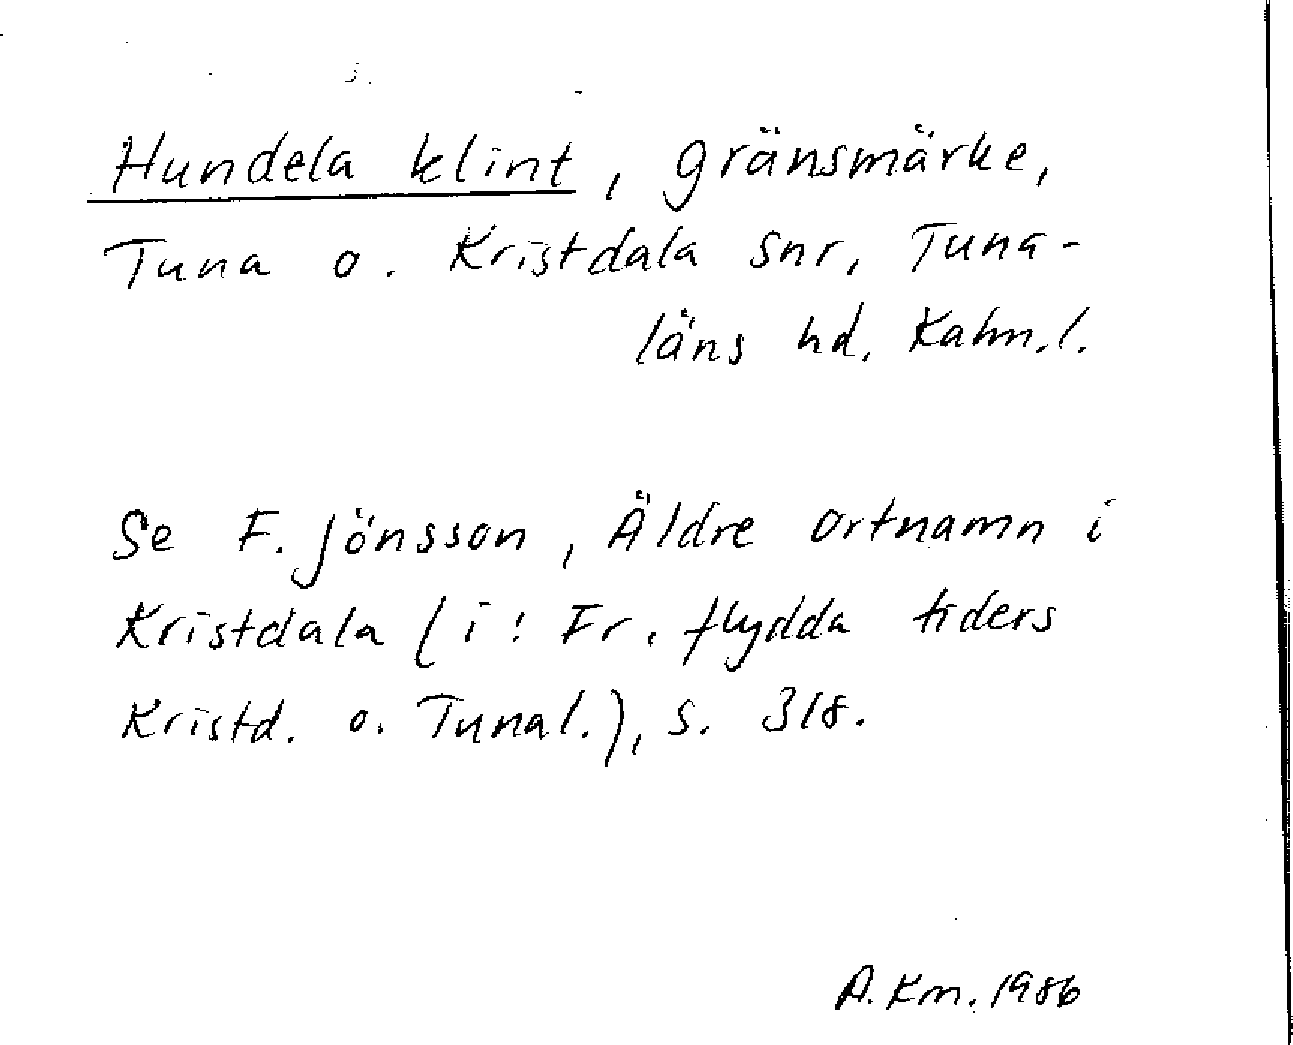 Hundela klint, gränsmärke,
Tuna o. Kristdala snr, Tuna-
läns hd. Kalm.l.
Se F. Jönsson, Äldre ortnamn i
Kristdala (i: Fr. flydda tiders
Kristd. o. Tunal.), s. 318.
A. Km. 1986